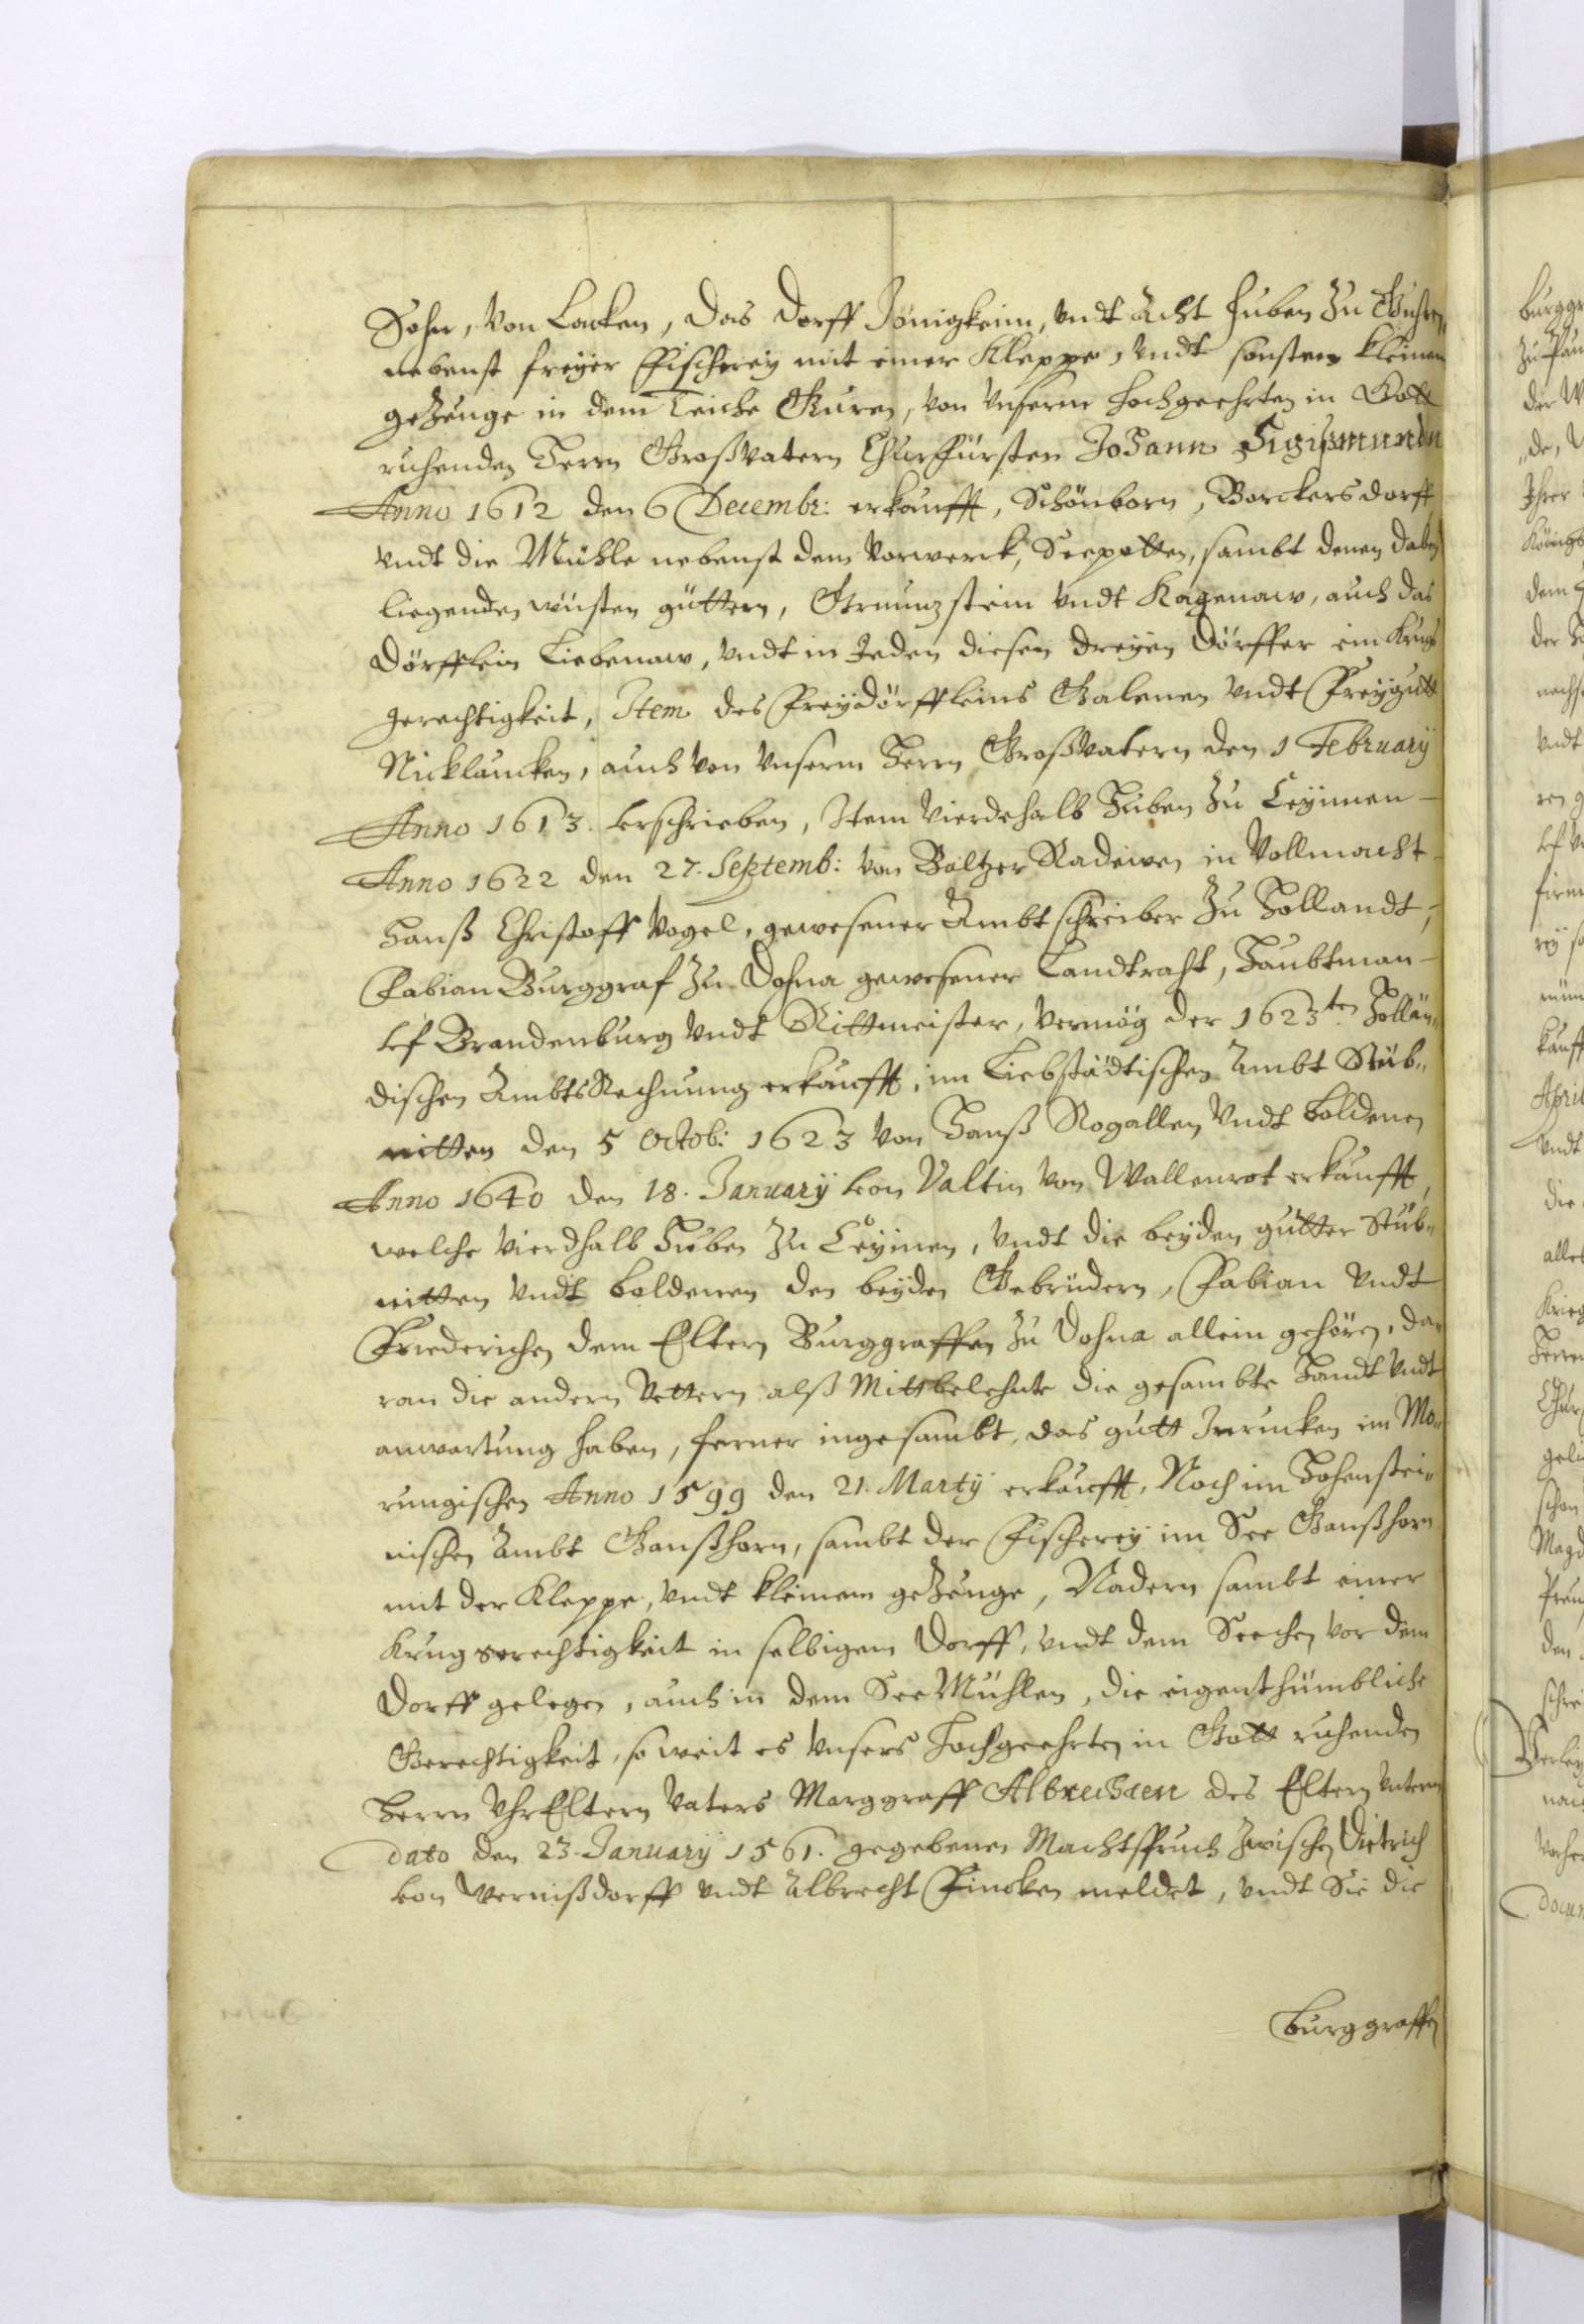 Sohn, von Lacken, das Dorff Jönigkeim, undt Acht huben zu
nebenst freyer Fischerey mit einer Kleppe, undt sonsten kleinem
geZeuge in dem Teiche Guren, von Unserm hochgeehrten in Gott
ruhenden Herrn Großvatern Churfürsten Johann Sigißmundn
Anno 1612 den 6 Decembr: erkaufft, Schönborn, Borckersdorff
undt die Mühle nebenst dem Vorwerck, Seepotten, sambt denen dabey
liegenden wüsten güttern, Grunzstein undt Kagenaw, auch das
Dörfflein Liebenaw, undt in Jeden diesen dreyen Dörffer ein Krugs
gerechtigkeit, Item des Freydörffleins Galenen undt Freygutt
Nicklaucken, auch von Unserm Herrn Großvatern den 1 February
Anno 1613. verschrieben, Item Vierdehalb Huben zu Leyinen
Anno 1622 den 27. Septemb: von Baltzer Radewen in Vollmacht
Hanß Christoff Vogel, gewesener Ambtschreiber Zu Hollandt,
Fabian Burggraf Zu Dohna gewesener Landtraht, Haubtman
uf Brandenburg undt Rittmeister, vermög der 1623ten Hollän„
dischen AmbtsRechnung erkaufft, im Liebstädtischen Ambt Stüb„
nitten den 5 Octob: 1623 von Hanß Rogallen undt Boldenen
Anno 1640 den 18. January von Valtin von Wallenrot erkaufft,
welche Vierdhalb Huben Zu Leyinen, undt die beyden gütter Stüb„
nitten undt Boldenen den beyden Gebrüdern, Fabian undt
Friederichen dem Eltern Burggraffen zu Dohna allein gehören, da„
ran die andern Vettern alß Mittbelehnte die gesambte Handt undt
anwartung haben, ferner ingesambt, das gutt Inrucken im Mo„
rungischen Anno 1599 den 21. Marty erkaufft, Noch im Hohenstei„
nischen Ambt Ganßhorn, sambt der Fischerey im See Ganßhorn
mit der Kleppe, undt kleinem geZeuge, Nadern sambt einer
Kruggerechtigkeit in selbigem Dorff, undt dem Seechen vor dem
Dorff gelegen, auch in dem See Mühlen, die eigenthümbliche
Gerechtigkeit, so weit es Unsers Hochgeehrten in Gott ruhenden
Herrn UhrEltern Vaters Marggraff Albrechten des Eltern Unterm
dato den 23. January 1561. gegebenen Machtspruch zwischen Dietrich
von Wernißdorff undt Albrecht Fincken meldet, undt Sie die
Burggraffen